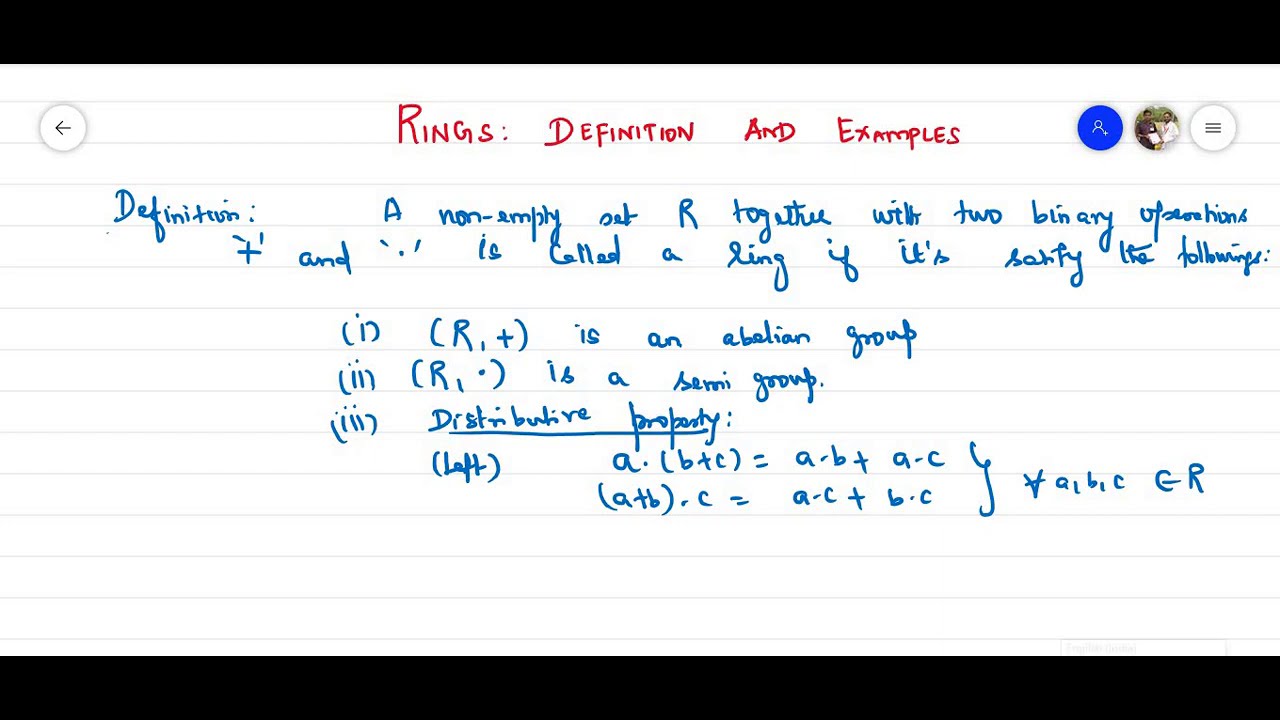 RINGS: DEFINITION AND EXAMPLES
Definition: A non-empty set R together with two binary operations
'+' and '.' is called a ring if it's satify the followings:
(i) (R, +) is an abelian group
(ii) (R, ·) is a semi group.
(iii) Distributive property:
(left) a·(b+c) = a·b + a·c
(a+b)·c = a·c + b·c } ∀ a, b, c ∈ R
English (India)